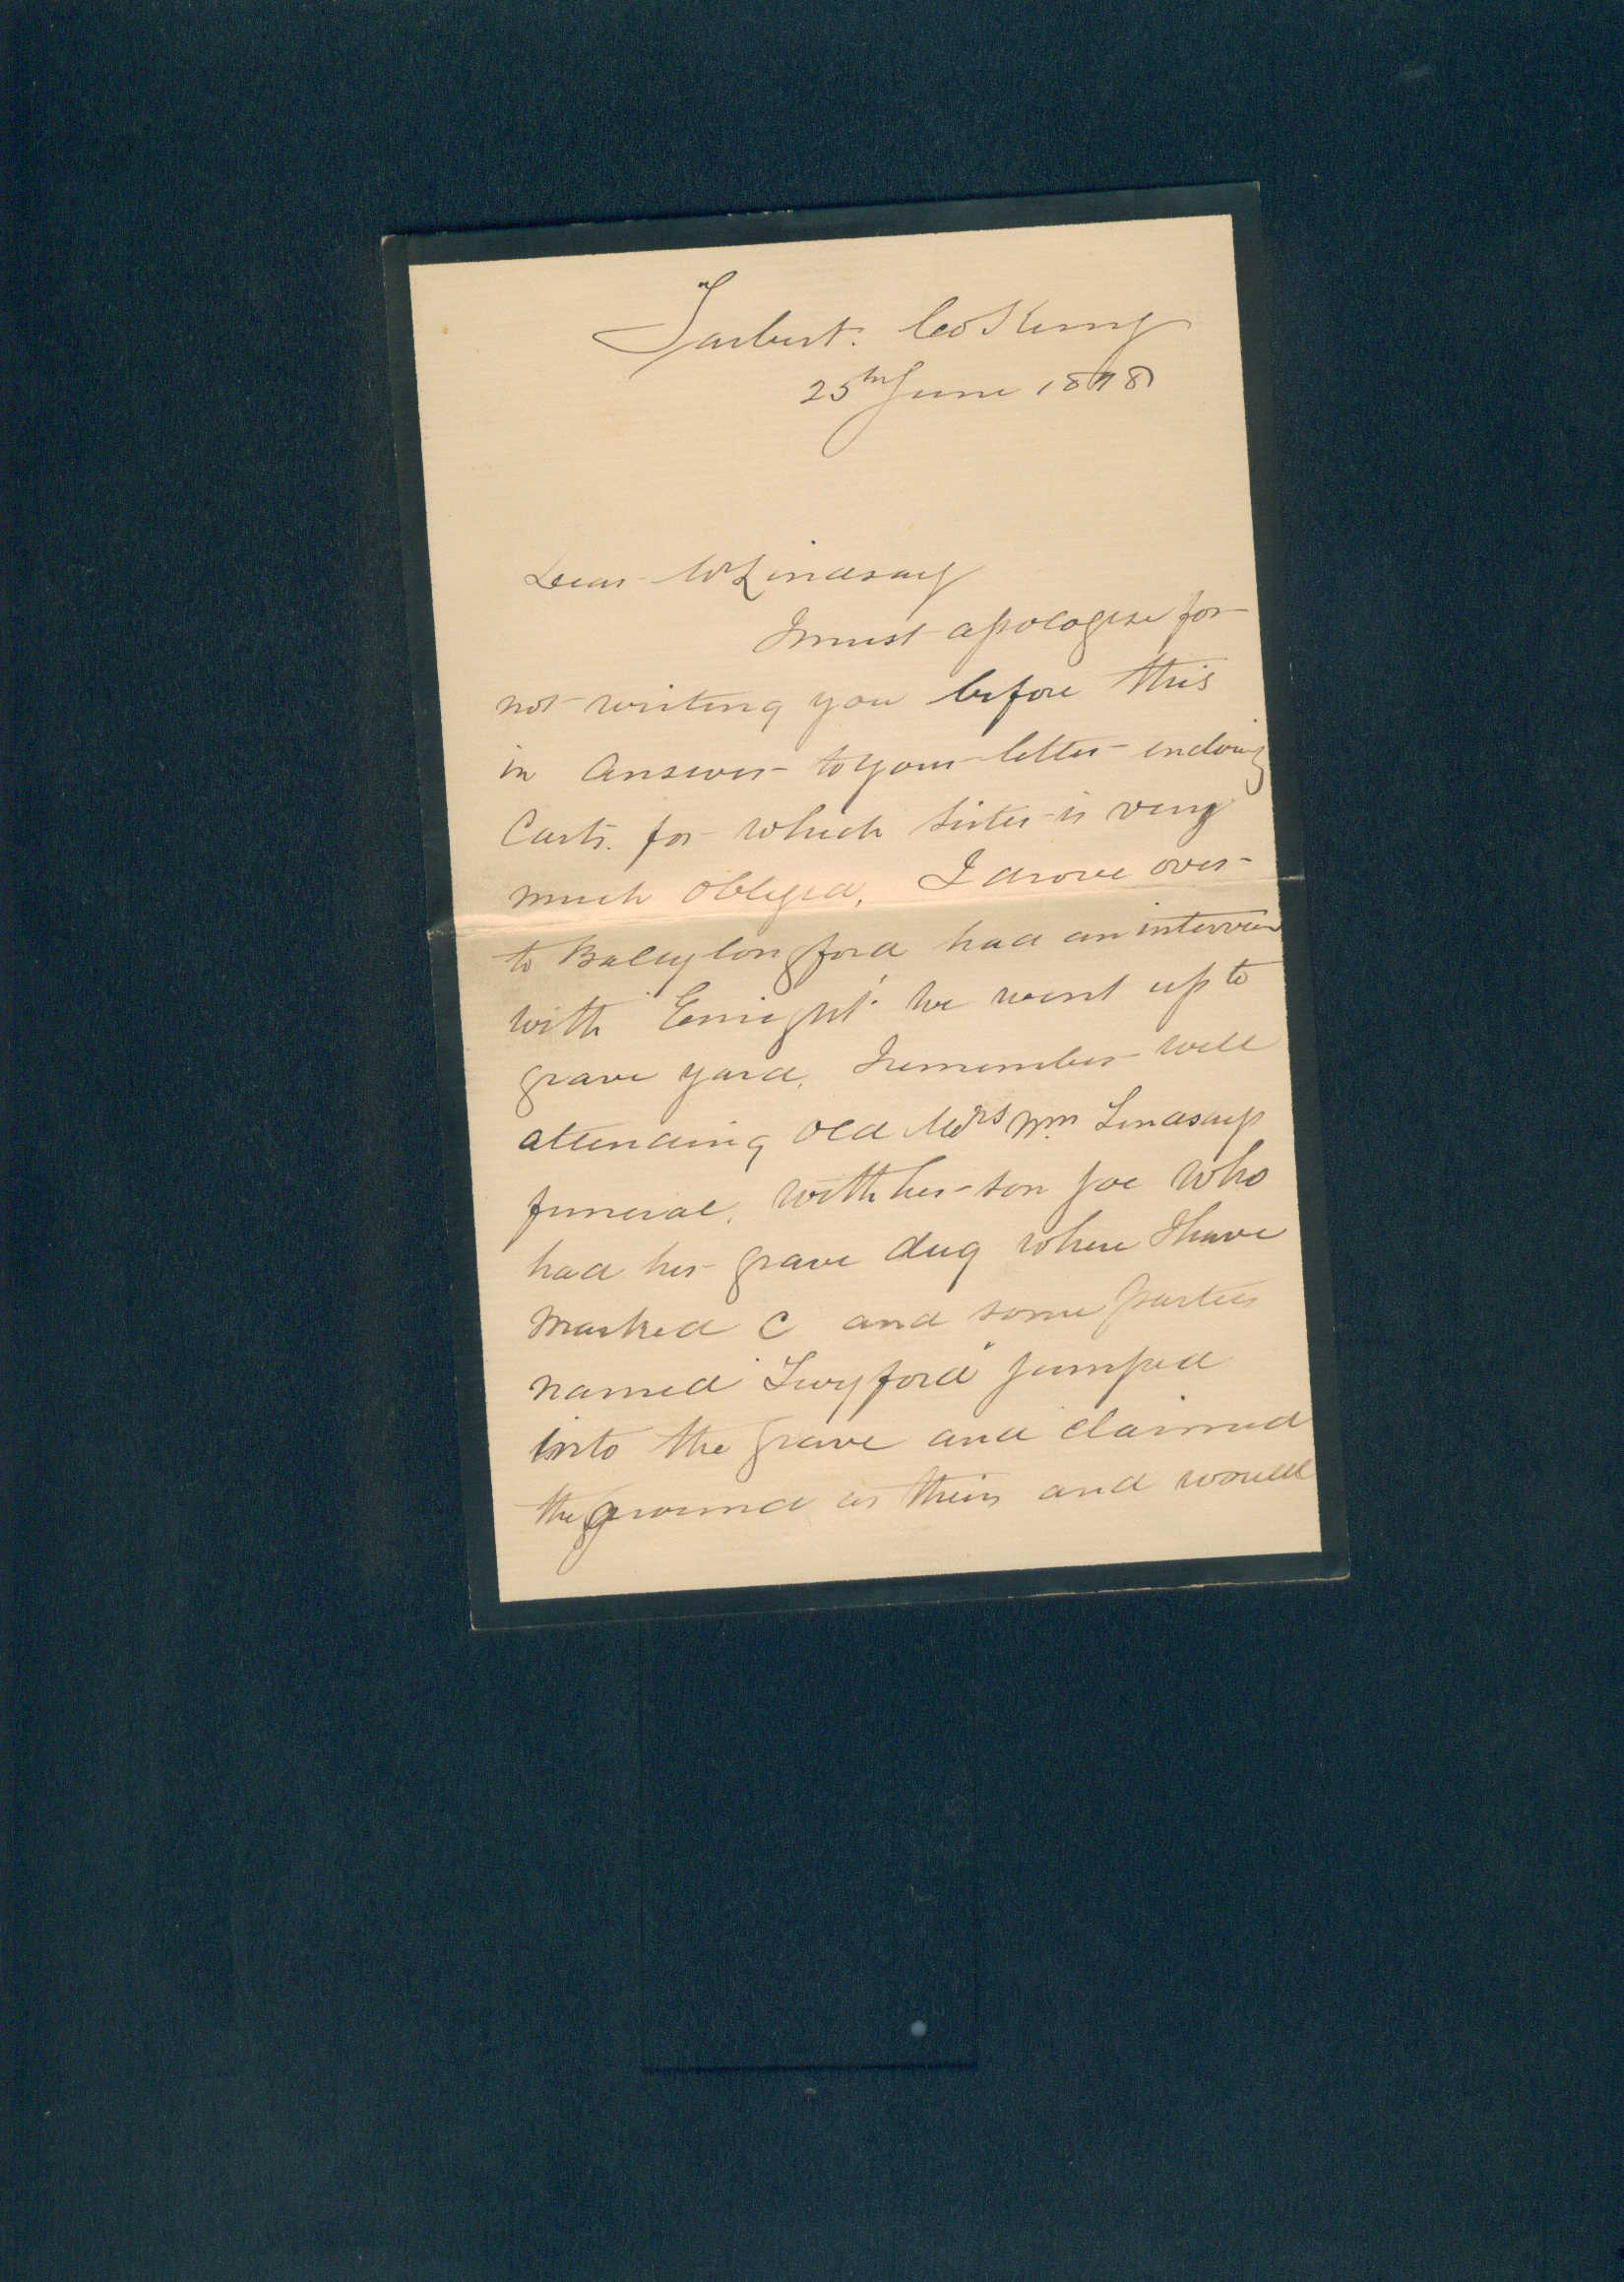 Tarbert. Co Kerry
25th June 1898
Dear Mr Lindsay
I must apologise for
not writing you before this
in Answer to your letter enclosing
Carts. for which Sister is very
much obliged, I drove over
to Ballylongford had an interview
with "Enright" we went up to
grave yard, I remember well
attending old Mrs Wm Lindsays
funeral, with her son Joe who
had her grave dug where I have
marked C and some parties
named "Twyford" jumped
into the grave and claimed
the ground as theirs and would